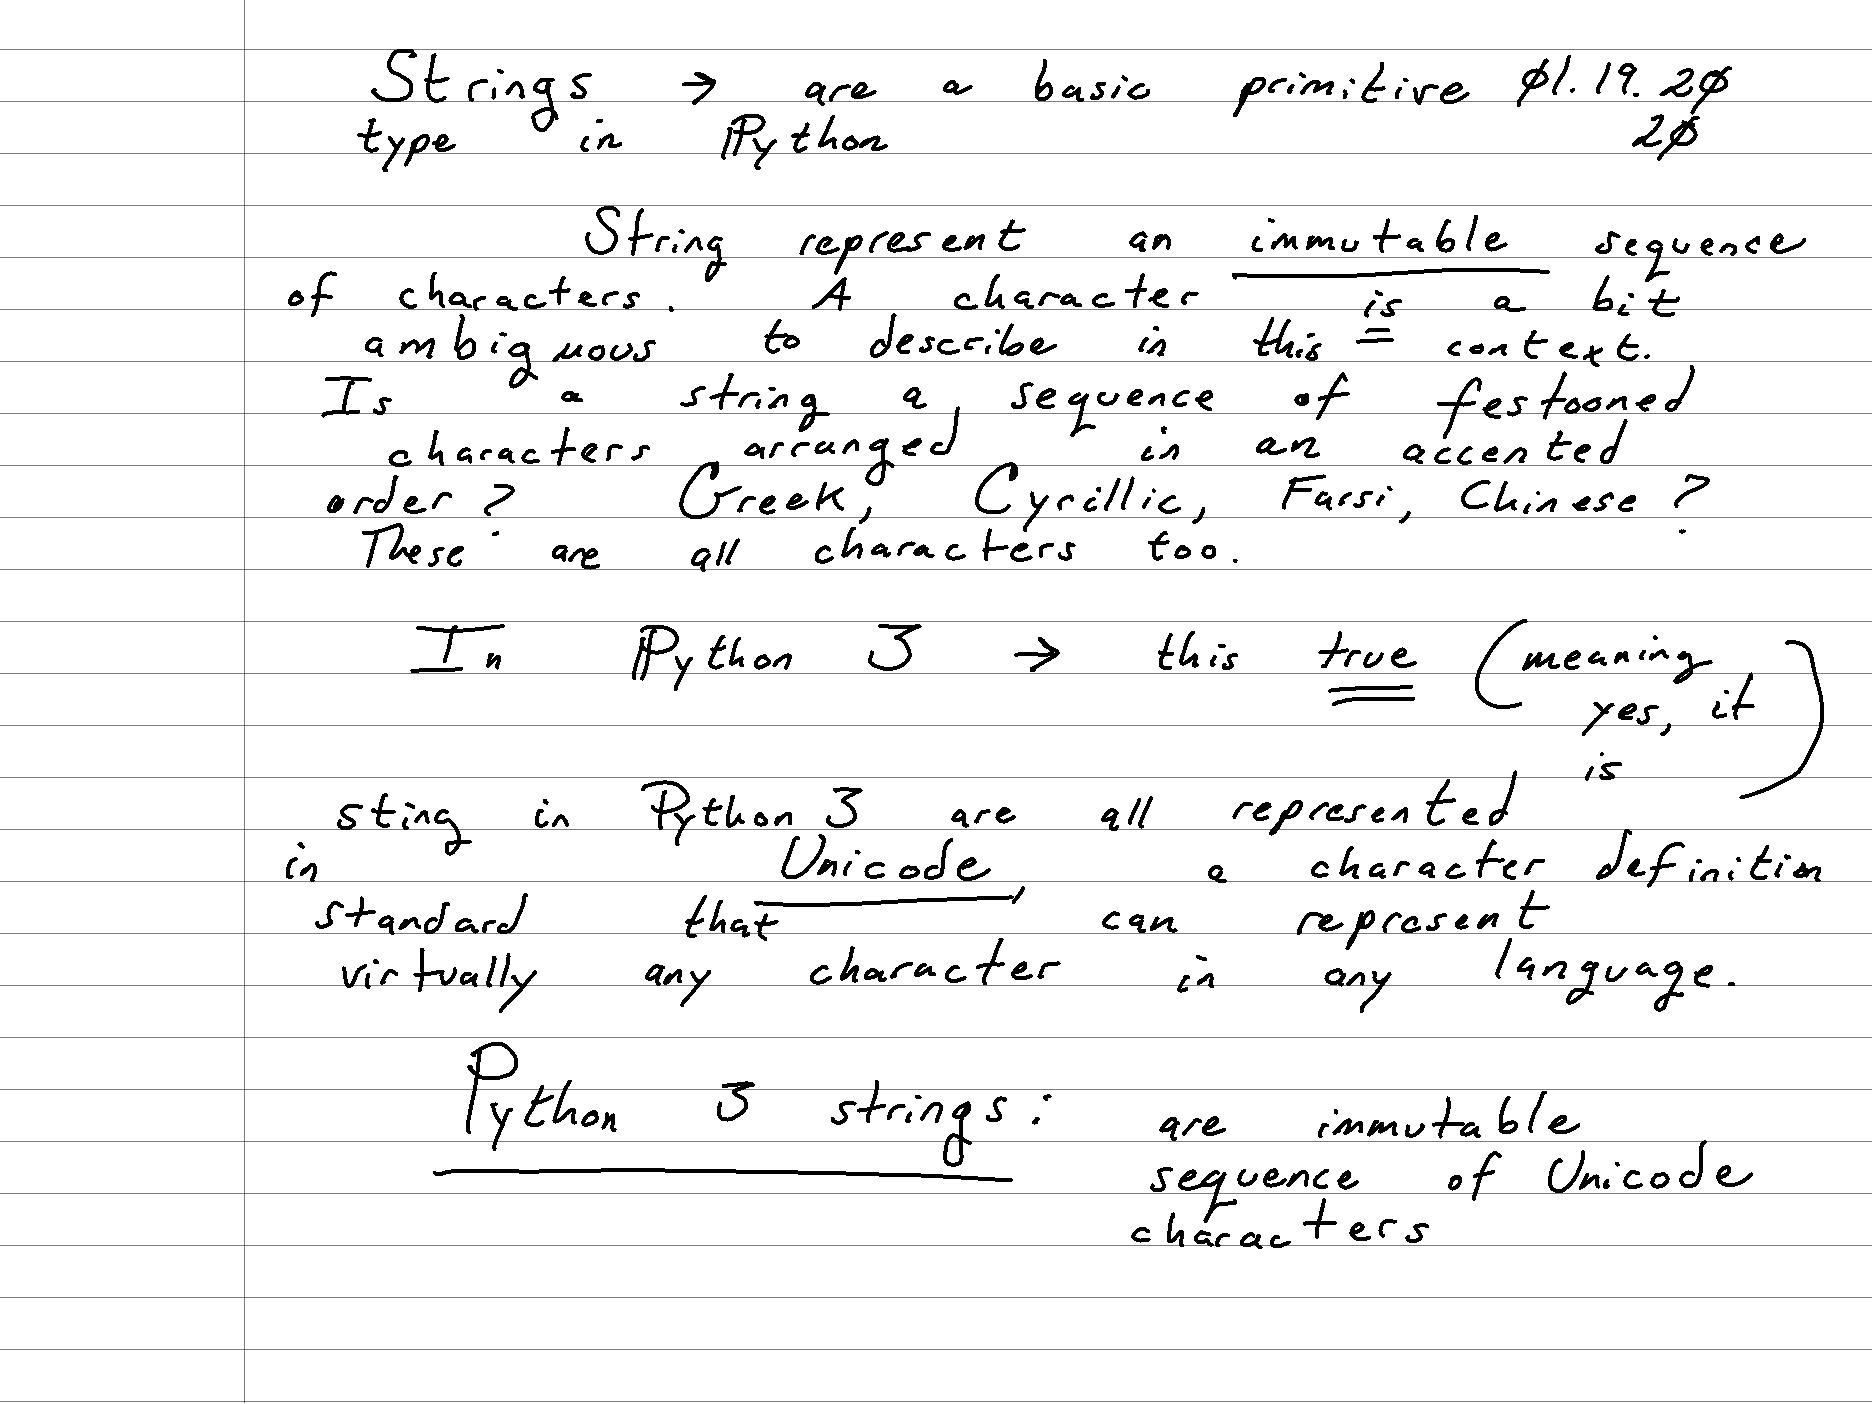 Strings → are a basic primitive 01.19.20
type in Python 20
String represent an immutable sequence
of characters. A character is a bit
ambiguous to describe in this context.
Is a string a sequence of festooned
characters arranged in an accented
order? Greek, Cyrillic, Farsi, Chinese?
These are all characters too.
In Python 3 → this true (meaning
yes, it
is)
sting in Python 3 are all represented
in Unicode, a character definition
standard that can represent
virtually any character in any language.
Python 3 strings: are immutable
sequence of Unicode
characters